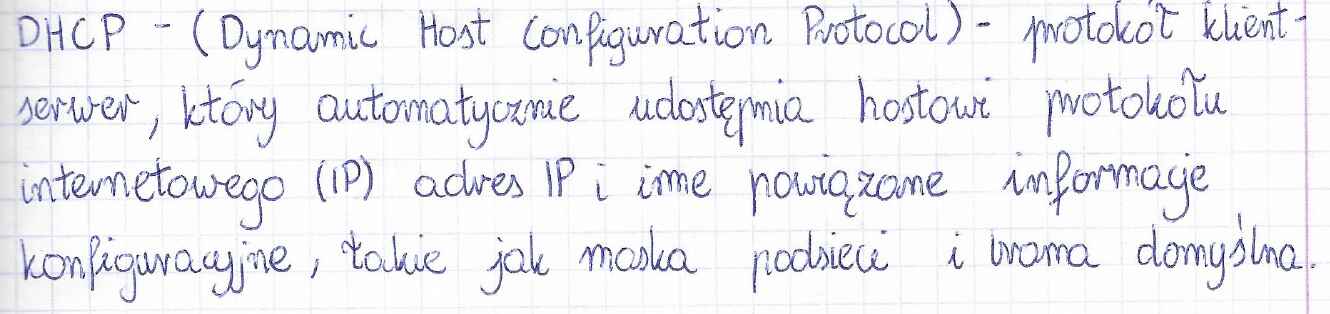 DHCP - (Dynamic Host Configuration Protocol) - protokół klient-
serwer, który automatycznie udostępnia hostowi protokołu
internetowego (IP) adres IP i inne powiązane informacje
konfiguracyjne, takie jak maska podsieci i brama domyślna.